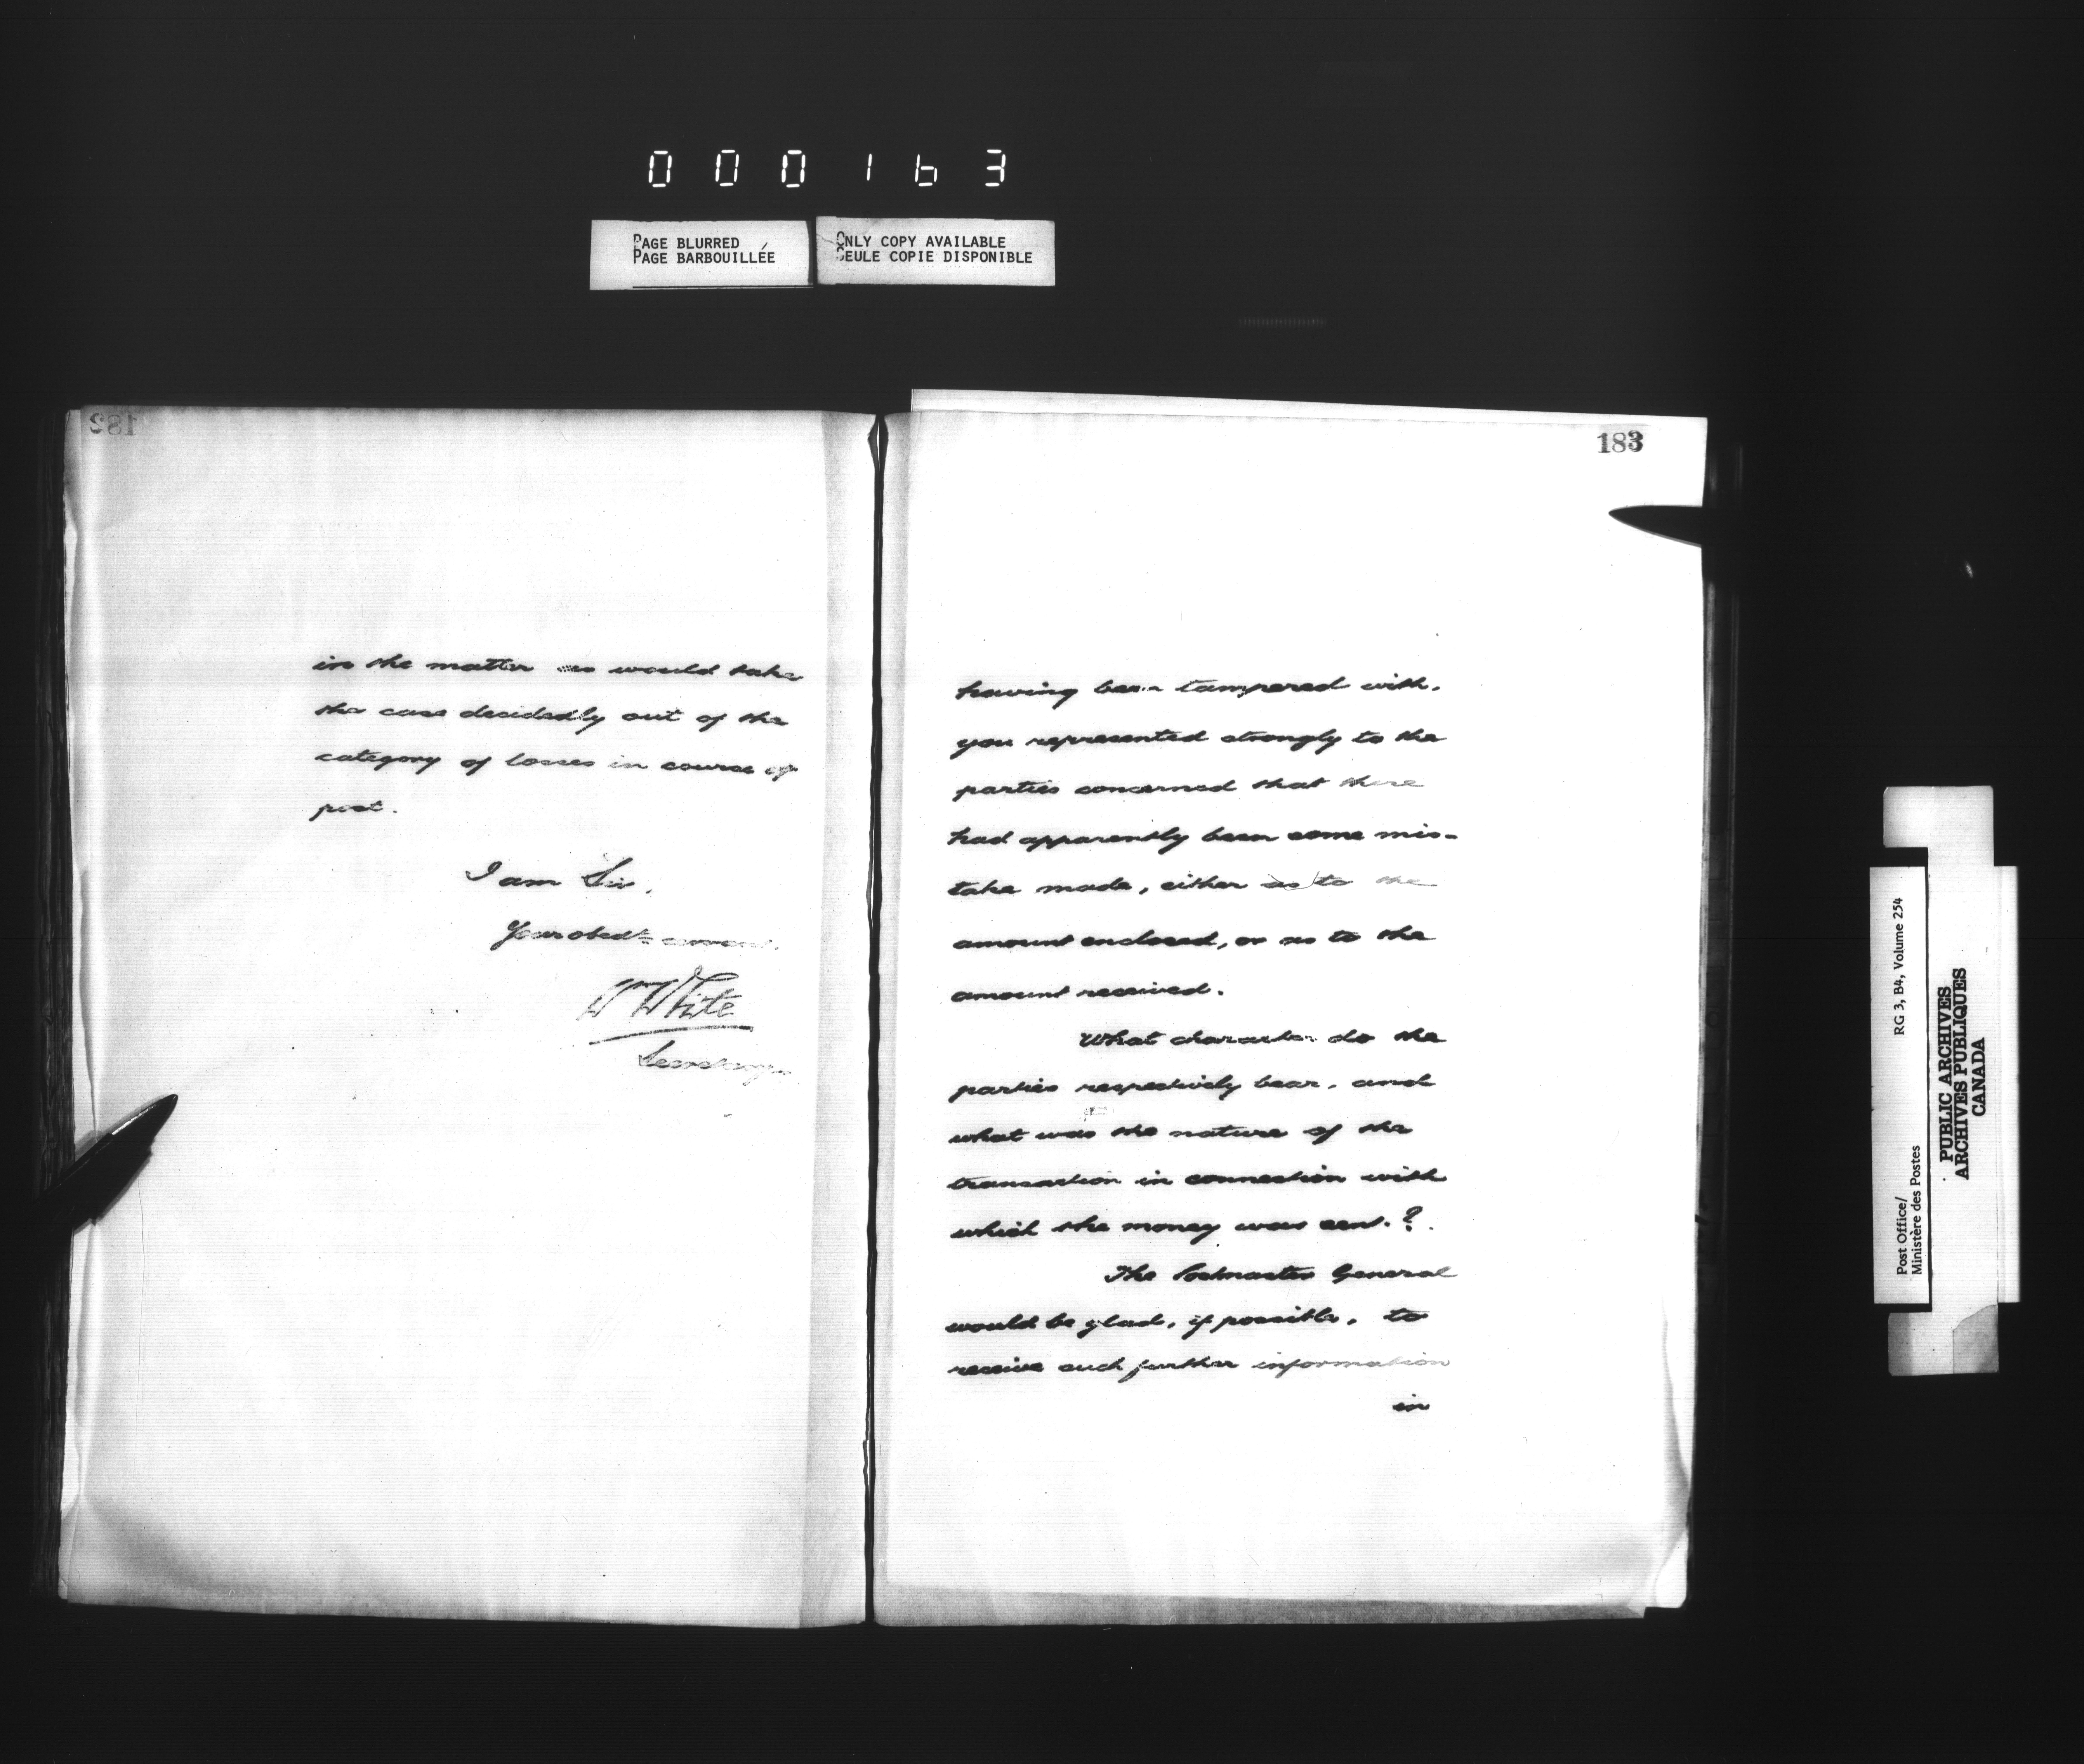 000163
PAGE BLURRED
PAGE BARBOUILLÉE
ONLY COPY AVAILABLE
SEULE COPIE DISPONIBLE
182
in the matter as would take
the case decidedly out of the
category of losses in course of
post.
I am Sir,
Your obedt servant.
Wm White
Secretary
183
having been tampered with,
you represented strongly to the
parties concerned that there
had apparently been some mis-
take made, either as to the
amount enclosed, or as to the
amount received.
What character do the
parties respectively bear, and
what was the nature of the
transaction in connection with
which the money was sent.?
The Postmaster General
would be glad, if possible, to
receive such further information
in
Post Office/
Ministère des Postes
RG 3, B4, Volume 254
PUBLIC ARCHIVES
ARCHIVES PUBLIQUES
CANADA